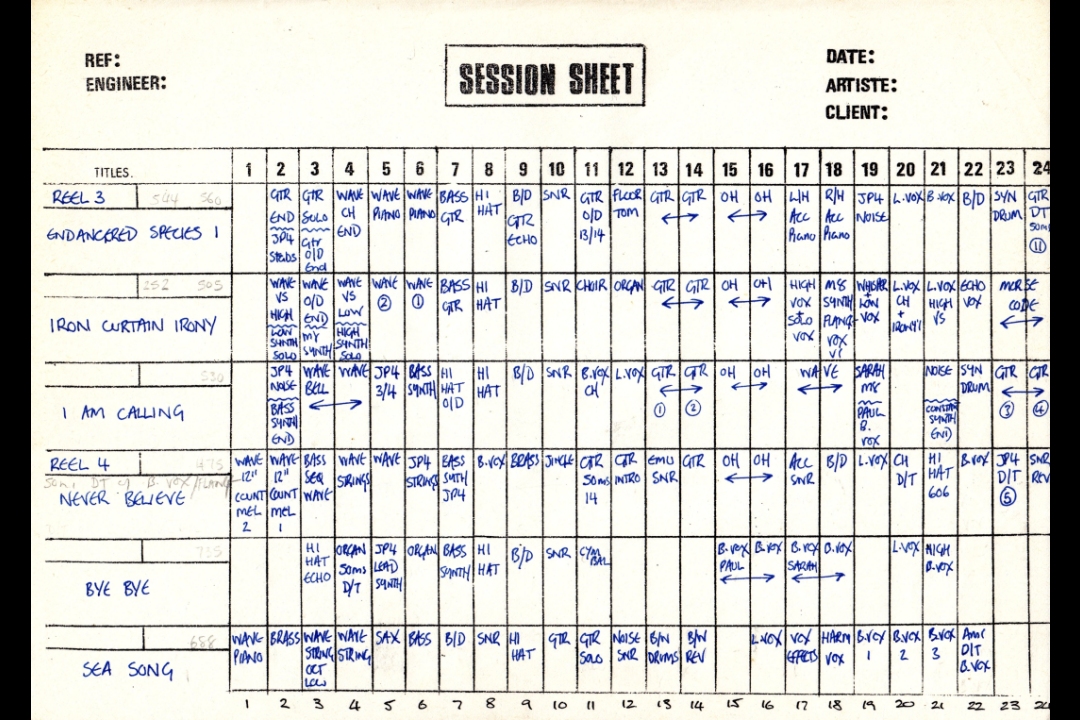 REF:
ENGINEER:
SESSION SHEET
DATE:
ARTISTE:
CLIENT:
TITLES. 1 2 3 4 5 6 7 8 9 10 11 12 13 14 15 16 17 18 19 20 21 22 23 24
REEL 3 544 560
ENDANGERED SPECIES 1
GTR END JP4 SPEEDS
GTR SOLO GTR O/D END
WAVE CH END
WAVE PIANO
WAVE PIANO
BASS GTR
HI HAT
B/D GTR ECHO
SNR
GTR O/D 13/14
FLOOR TOM
GTR ↔ GTR
OH ↔ OH
L/H ACC PIANO
R/H ACC PIANO
JP4 NOISE
L.VOX
B.VOX
B/D
SYN DRUM
GTR DT 50ms 11
252 505
IRON CURTAIN IRONY
WAVE VS HIGH LOW SYNTH SOLO
WAVE O/D END M4 SYNTH
WAVE VS LOW HIGH SYNTH SOLO
WAVE 2
WAVE 1
BASS GTR
HI HAT
B/D
SNR
CHOIR
ORGAN
GTR ↔ GTR
OH ↔ OH
HIGH VOX SOLO VOX
M8 SYNTH FLANGE VOX V1
WHISPER + LOW VOX
L.VOX CH + IRONY'1
L.VOX HIGH VS
ECHO VOX
MORSE CODE ↔
530
I AM CALLING
JP4 NOISE BASS SYNTH END
WAVE BELL ↔ WAVE
JP4 3/4
BASS SYNTH
HI HAT O/D
HI HAT
B/D
SNR
B.VOX CH
L.VOX
GTR 1 ↔ GTR 2
OH ↔ OH
WAVE ↔
SARAH M8 PAUL B. VOX
NOISE CONSTAN SYNTH END
SYN DRUM
GTR 3 ↔ GTR 4
REEL 4 475
50ms DT of B.VOX/FLANGE
NEVER BELIEVE
WAVE 12" COUNT MEL 2
WAVE 12" COUNT MEL 1
BASS SEQ WAVE
WAVE STRINGS
WAVE
JP4 STRINGS
BASS SYNTH JP4
B.VOX
BRASS
JINGLE
GTR 50ms 14
GTR INTRO
EMU SNR
GTR
OH ↔ OH
ACC SNR
B/D
L.VOX
CH D/T
HI HAT 606
B.VOX
JP4 D/T 5
SNR REV
735
BYE BYE
HI HAT ECHO
ORGAN 50ms D/T
JP4 LEAD SYNTH
ORGAN
BASS SYNTH
HI HAT
B/D
SNR
CYMBAL
B.VOX PAUL ↔ B.VOX
B.VOX SARAH ↔ B.VOX
L.VOX
HIGH B.VOX
688
SEA SONG
WAVE PIANO
BRASS
WAVE STRING OCT LOW
WAVE STRING
SAX
BASS
B/D
SNR
HI HAT
GTR
GTR SOLO
NOISE SNR
B/W DRUMS
B/W REV
L.VOX
VOX EFFECTS
HARM VOX
B.VOX 1
B.VOX 2
B.VOX 3
AMS D/T B.VOX
1 2 3 4 5 6 7 8 9 10 11 12 13 14 15 16 17 18 19 20 21 22 23 24